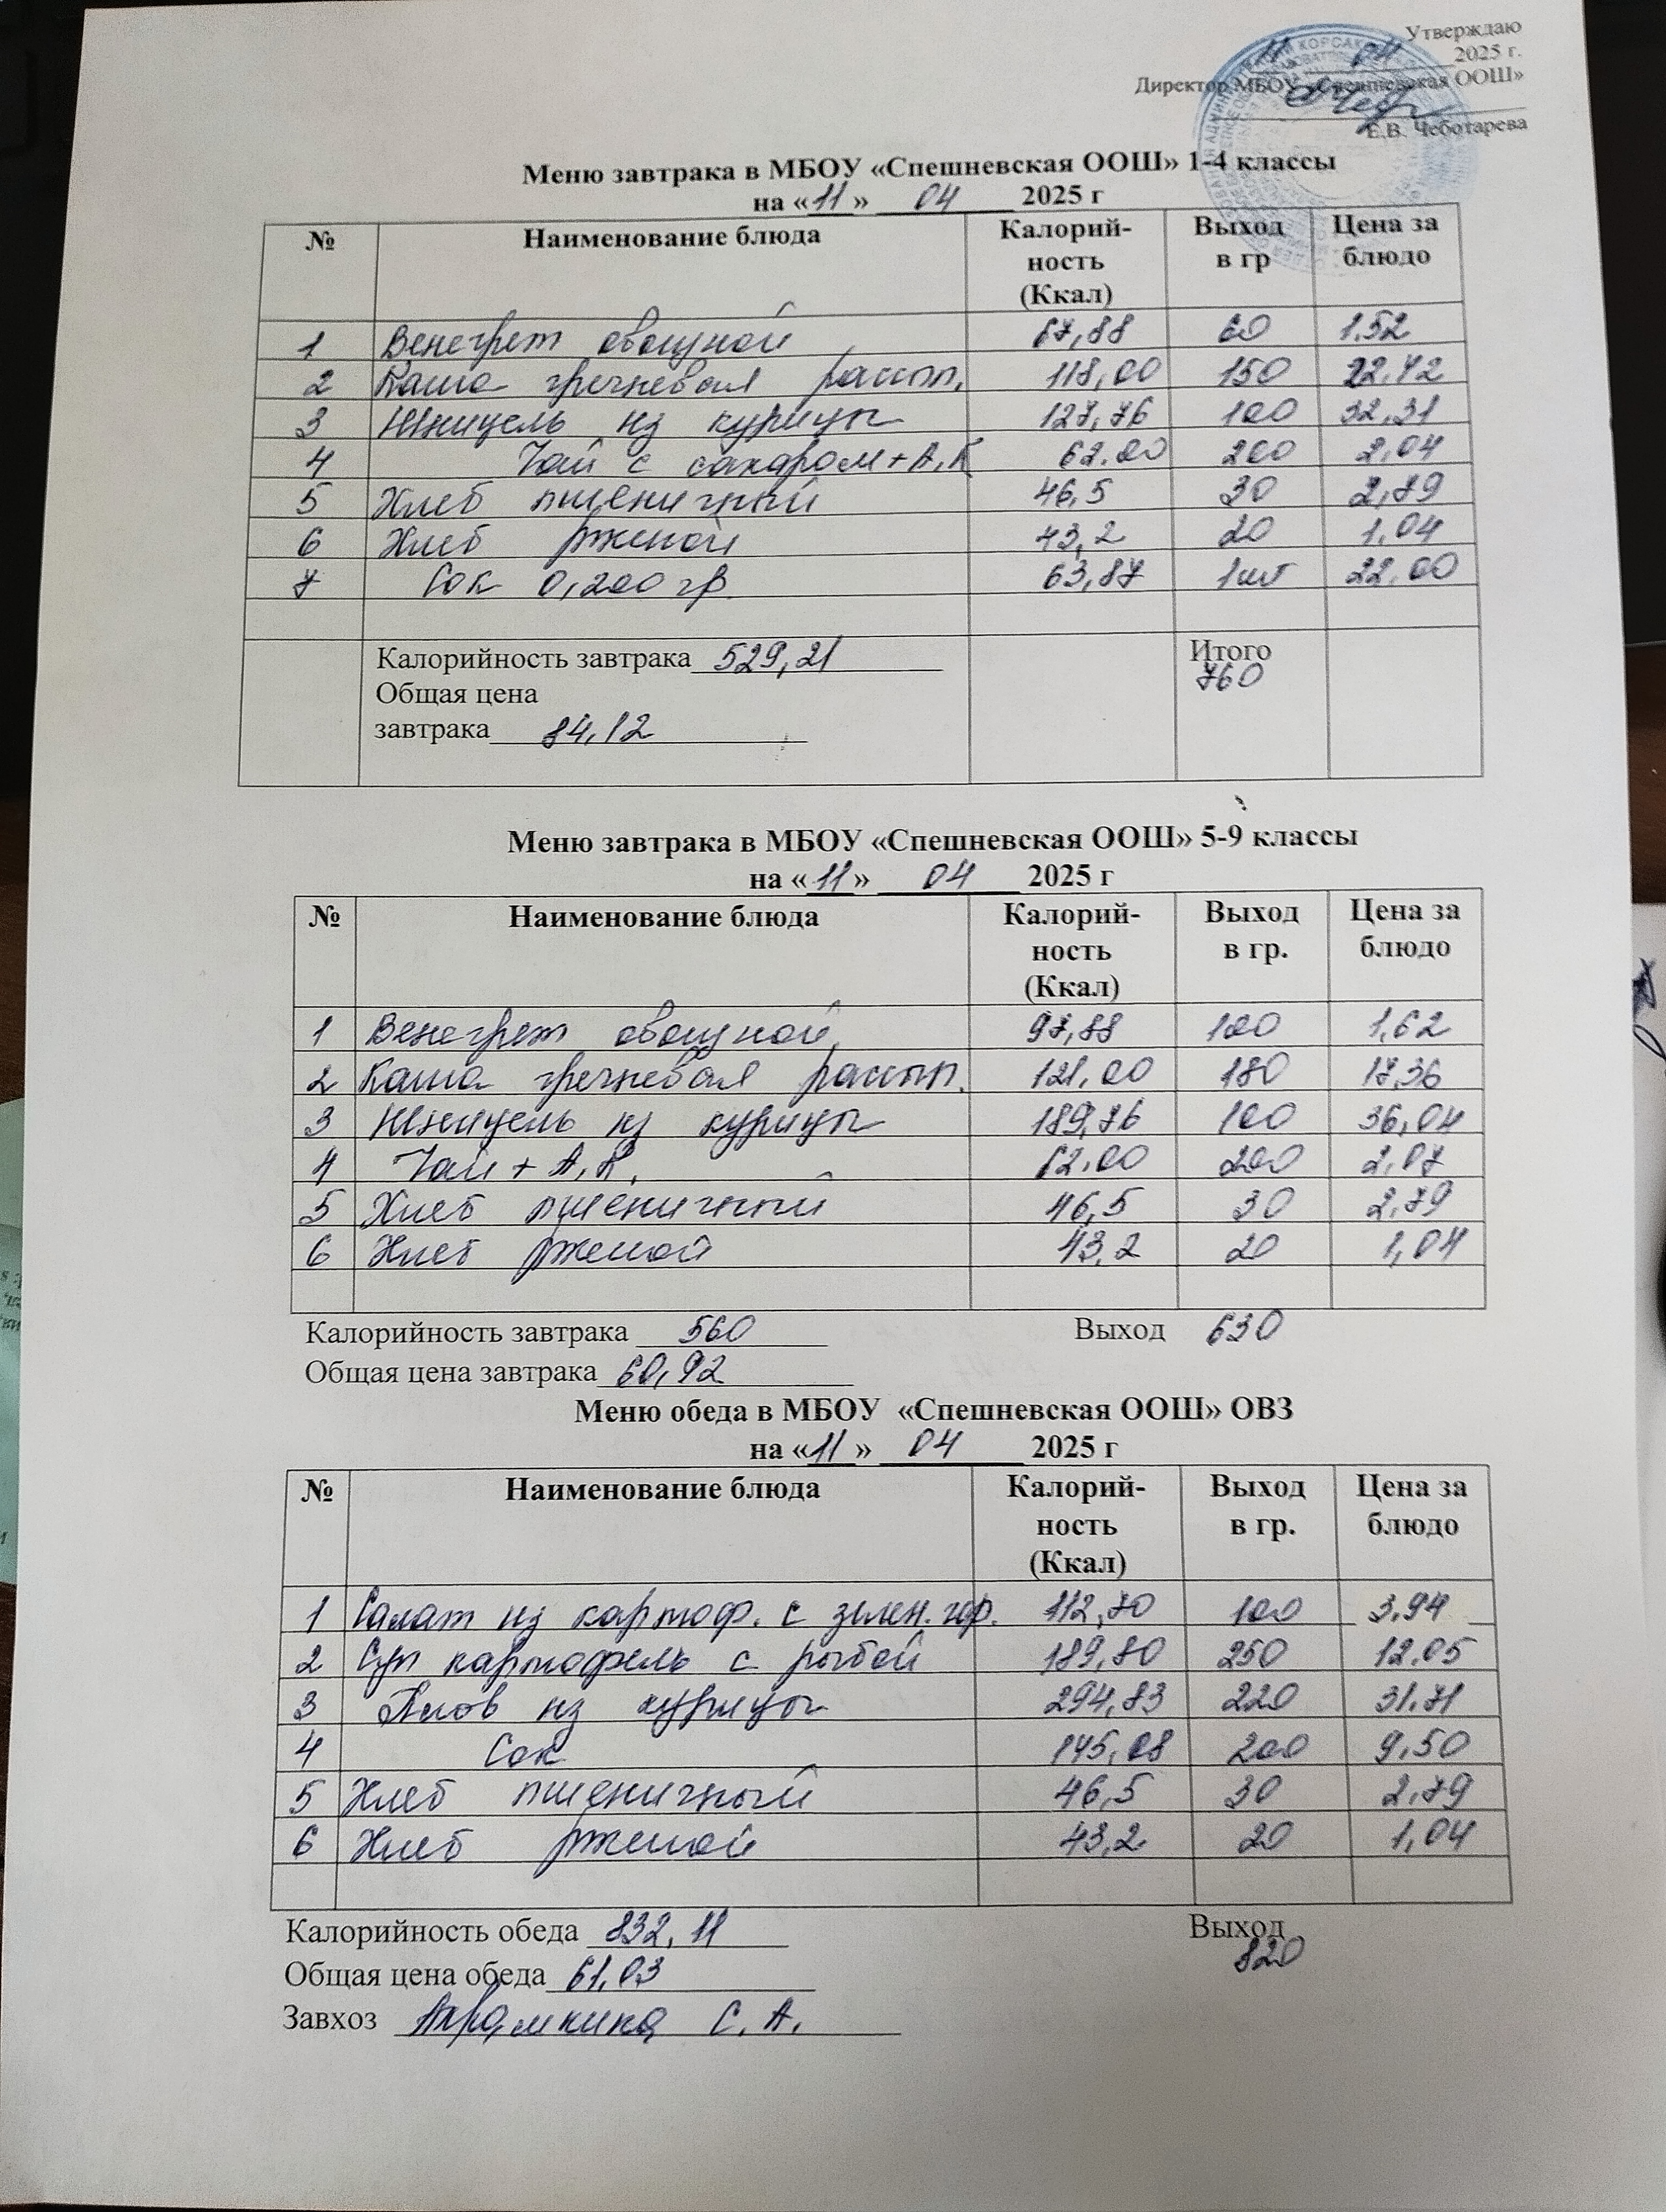 Утверждаю
11 04 2025 г.
Директор МБОУ «Спешневская ООШ»
Е.В. Чеботарева
Меню завтрака в МБОУ «Спешневская ООШ» 1-4 классы
на «11» 04 2025 г
№ Наименование блюда Калорий-ность (Ккал) Выход в гр Цена за блюдо
1 Венегрет овощной 67,88 60 1.52
2 Каша гречневая рассып. 118,00 150 22.42
3 Шницель из курицы 127,76 100 32,31
4 Чай с сахаром + А.К 62.00 200 2,04
5 Хлеб пшеничный 46,5 30 2,79
6 Хлеб ржаной 43,2 20 1,04
7 Сок 0,200 гр. 63,87 1шт 22,00
Калорийность завтрака 529,21 Итого
760
Общая цена
завтрака 84,12
Меню завтрака в МБОУ «Спешневская ООШ» 5-9 классы
на «11» 04 2025 г
№ Наименование блюда Калорий-ность (Ккал) Выход в гр. Цена за блюдо
1 Венегрет овощной 97,88 100 1,62
2 Каша гречневая рассып. 121,00 180 17,36
3 Шницель из курицы 189,76 100 36,04
4 Чай + А.К. 62.00 200 2,07
5 Хлеб пшеничный 46,5 30 2,79
6 Хлеб ржаной 43,2 20 1,04
Калорийность завтрака 560 Выход 630
Общая цена завтрака 60,92
Меню обеда в МБОУ «Спешневская ООШ» ОВЗ
на «11» 04 2025 г
№ Наименование блюда Калорий-ность (Ккал) Выход в гр. Цена за блюдо
1 Салат из картоф. с зелен. гор. 112,70 100 3,94
2 Суп картофель с рыбой 189,80 250 12.05
3 Плов из курицы 294,83 220 31.71
4 Сок 145,08 200 9,50
5 Хлеб пшеничный 46,5 30 2,79
6 Хлеб ржаной 43,2 20 1,04
Калорийность обеда 832,11 Выход
820
Общая цена обеда 61,03
Завхоз С. А.